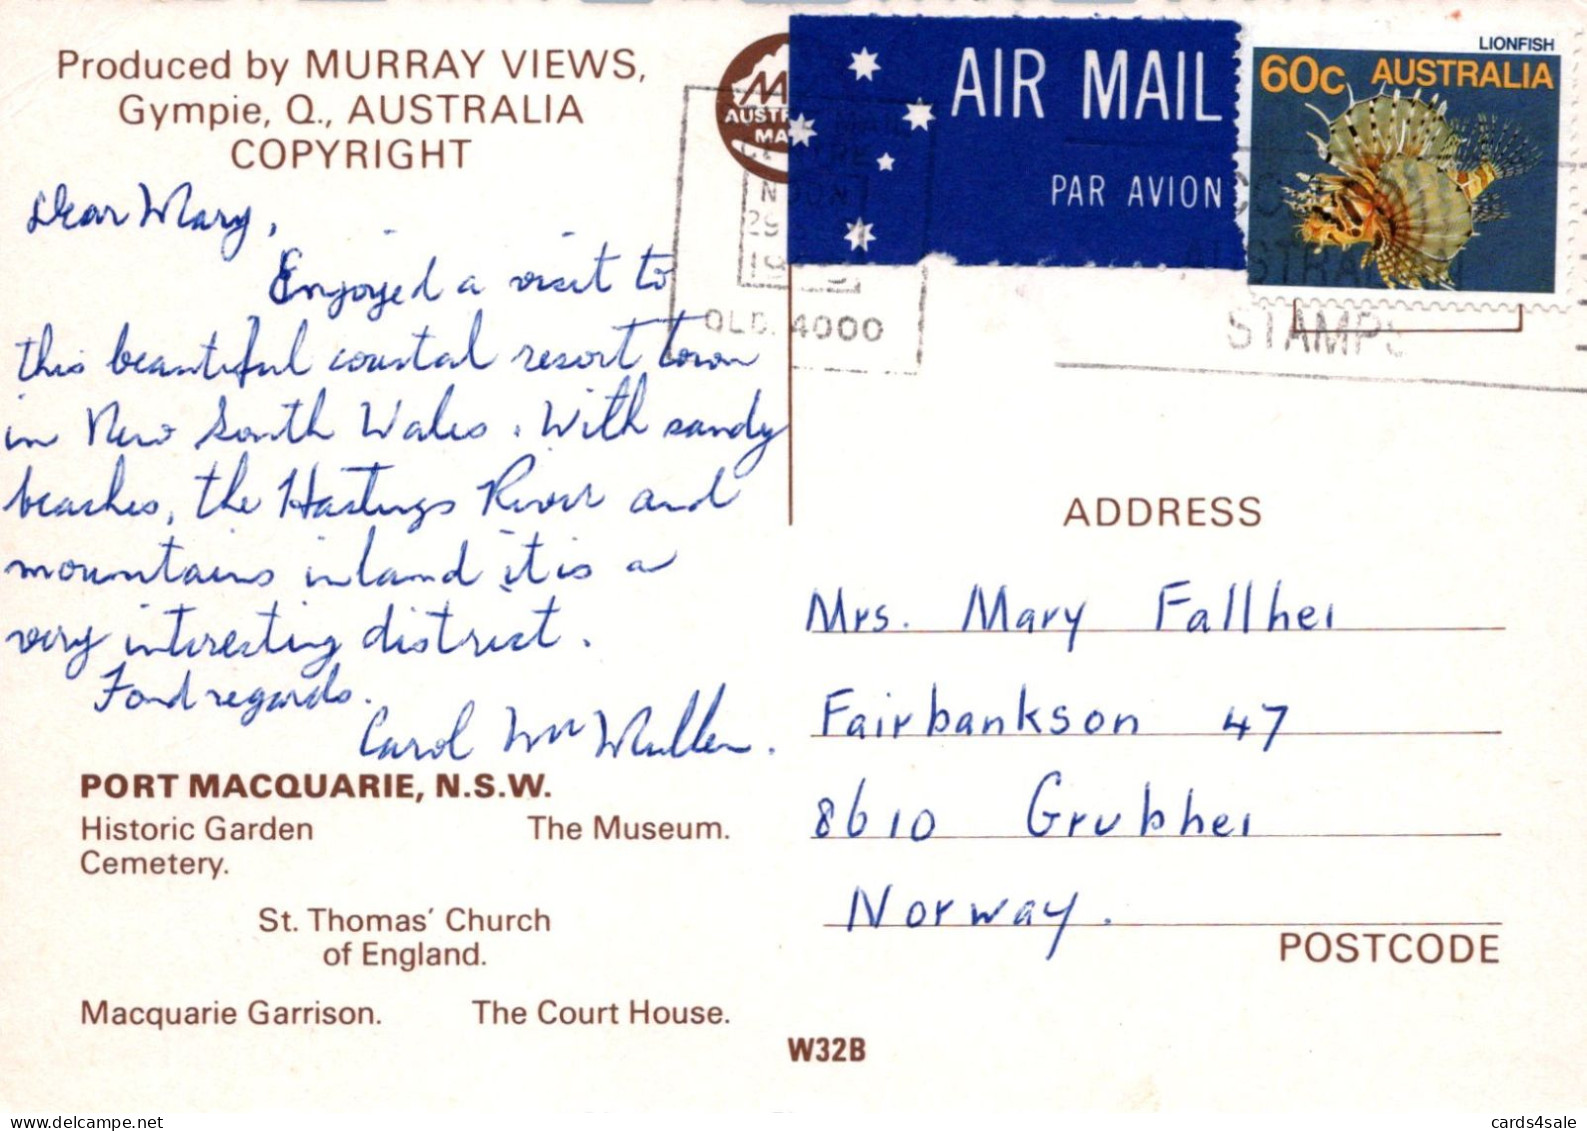 Produced by MURRAY VIEWS,
Gympie, Q., AUSTRALIA
COPYRIGHT
Dear Mary,
Enjoyed a visit to
this beautiful coastal resort town
in New South Wales. With sandy
beaches, the Hastings River and
mountains inland it is a
very interesting district.
Fond regards.
Carol McMullen.
PORT MACQUARIE, N.S.W.
Historic Garden
Cemetery.
The Museum.
St. Thomas' Church
of England.
Macquarie Garrison.
The Court House.
W32B
AIR MAIL
PAR AVION
LIONFISH
60c AUSTRALIA
MAIL
NOON
29
QLD. 4000
AUSTRALIA
STAMPS
ADDRESS
Mrs. Mary Fallhei
Fairbankson 47
8610 Grubhei
Norway.
POSTCODE
cards4sale